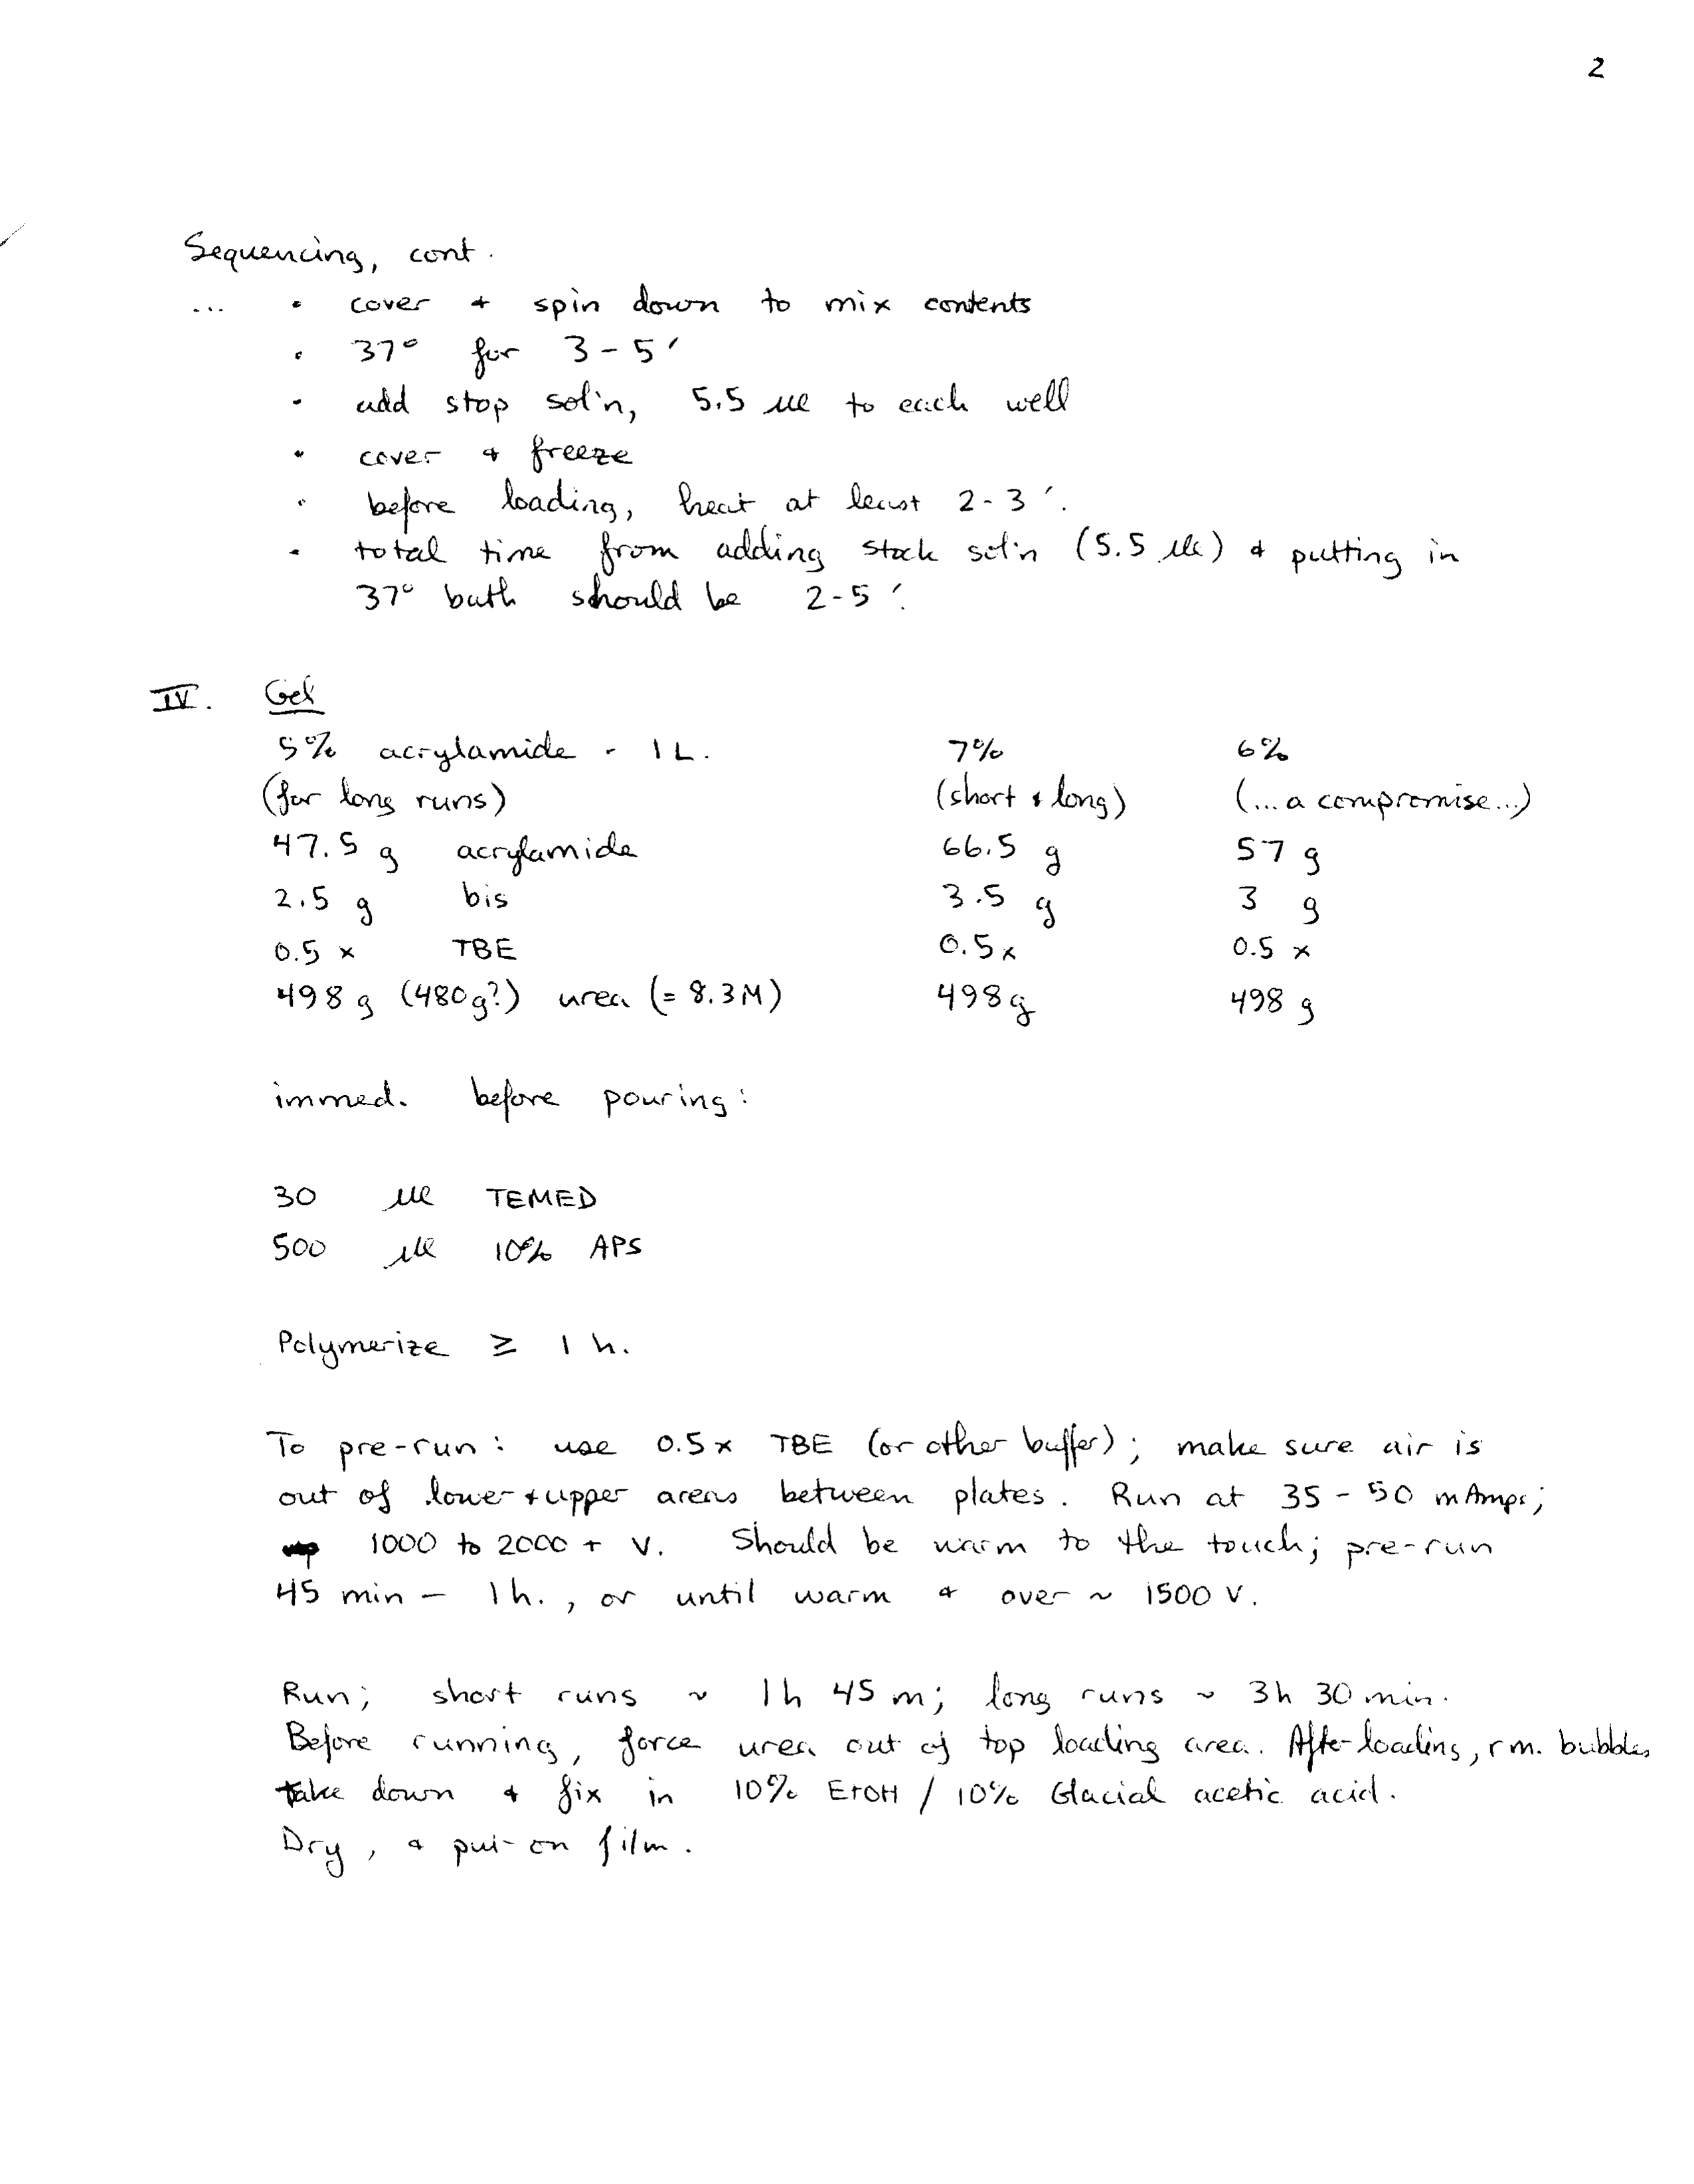 2
Sequencing, cont.
... • cover + spin down to mix contents
• 37° for 3-5'
• add stop sol'n, 5.5 µl to each well
• cover + freeze
• before loading, heat at least 2-3'.
• total time from adding stock sol'n (5.5 µl) + putting in
37° bath should be 2-5'.
IV. Gel
5% acrylamide - 1 L. 7% 6%
(for long runs) (short + long) (...a compromise...)
47.5 g acrylamide 66.5 g 57 g
2.5 g bis 3.5 g 3 g
0.5 x TBE 0.5x 0.5 x
498 g (480g?) urea (= 8.3M) 498g 498 g
immed. before pouring:
30 µl TEMED
500 µl 10% APS
Polymerize ≥ 1 h.
To pre-run: use 0.5x TBE (or other buffer); make sure air is
out of lower + upper areas between plates. Run at 35-50 mAmps;
1000 to 2000 + V. Should be warm to the touch; pre-run
45 min - 1 h., or until warm + over ~ 1500 V.
Run; short runs ~ 1h 45 m; long runs ~ 3h 30 min.
Before running, force urea out of top loading area. After loading, rm. bubbles
Take down + fix in 10% EtOH / 10% Glacial acetic acid.
Dry, + put on film.